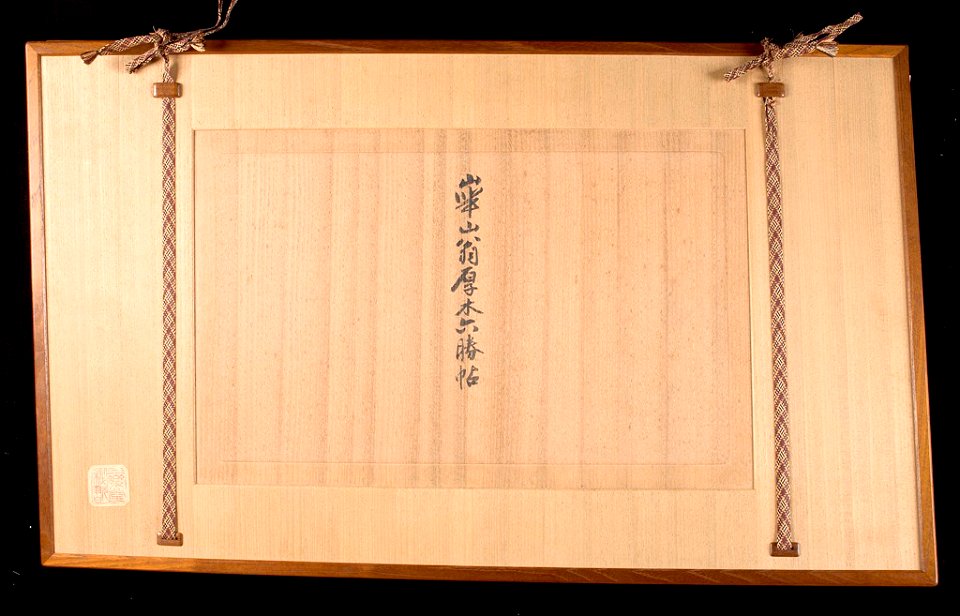 崋山翁厚木六勝帖